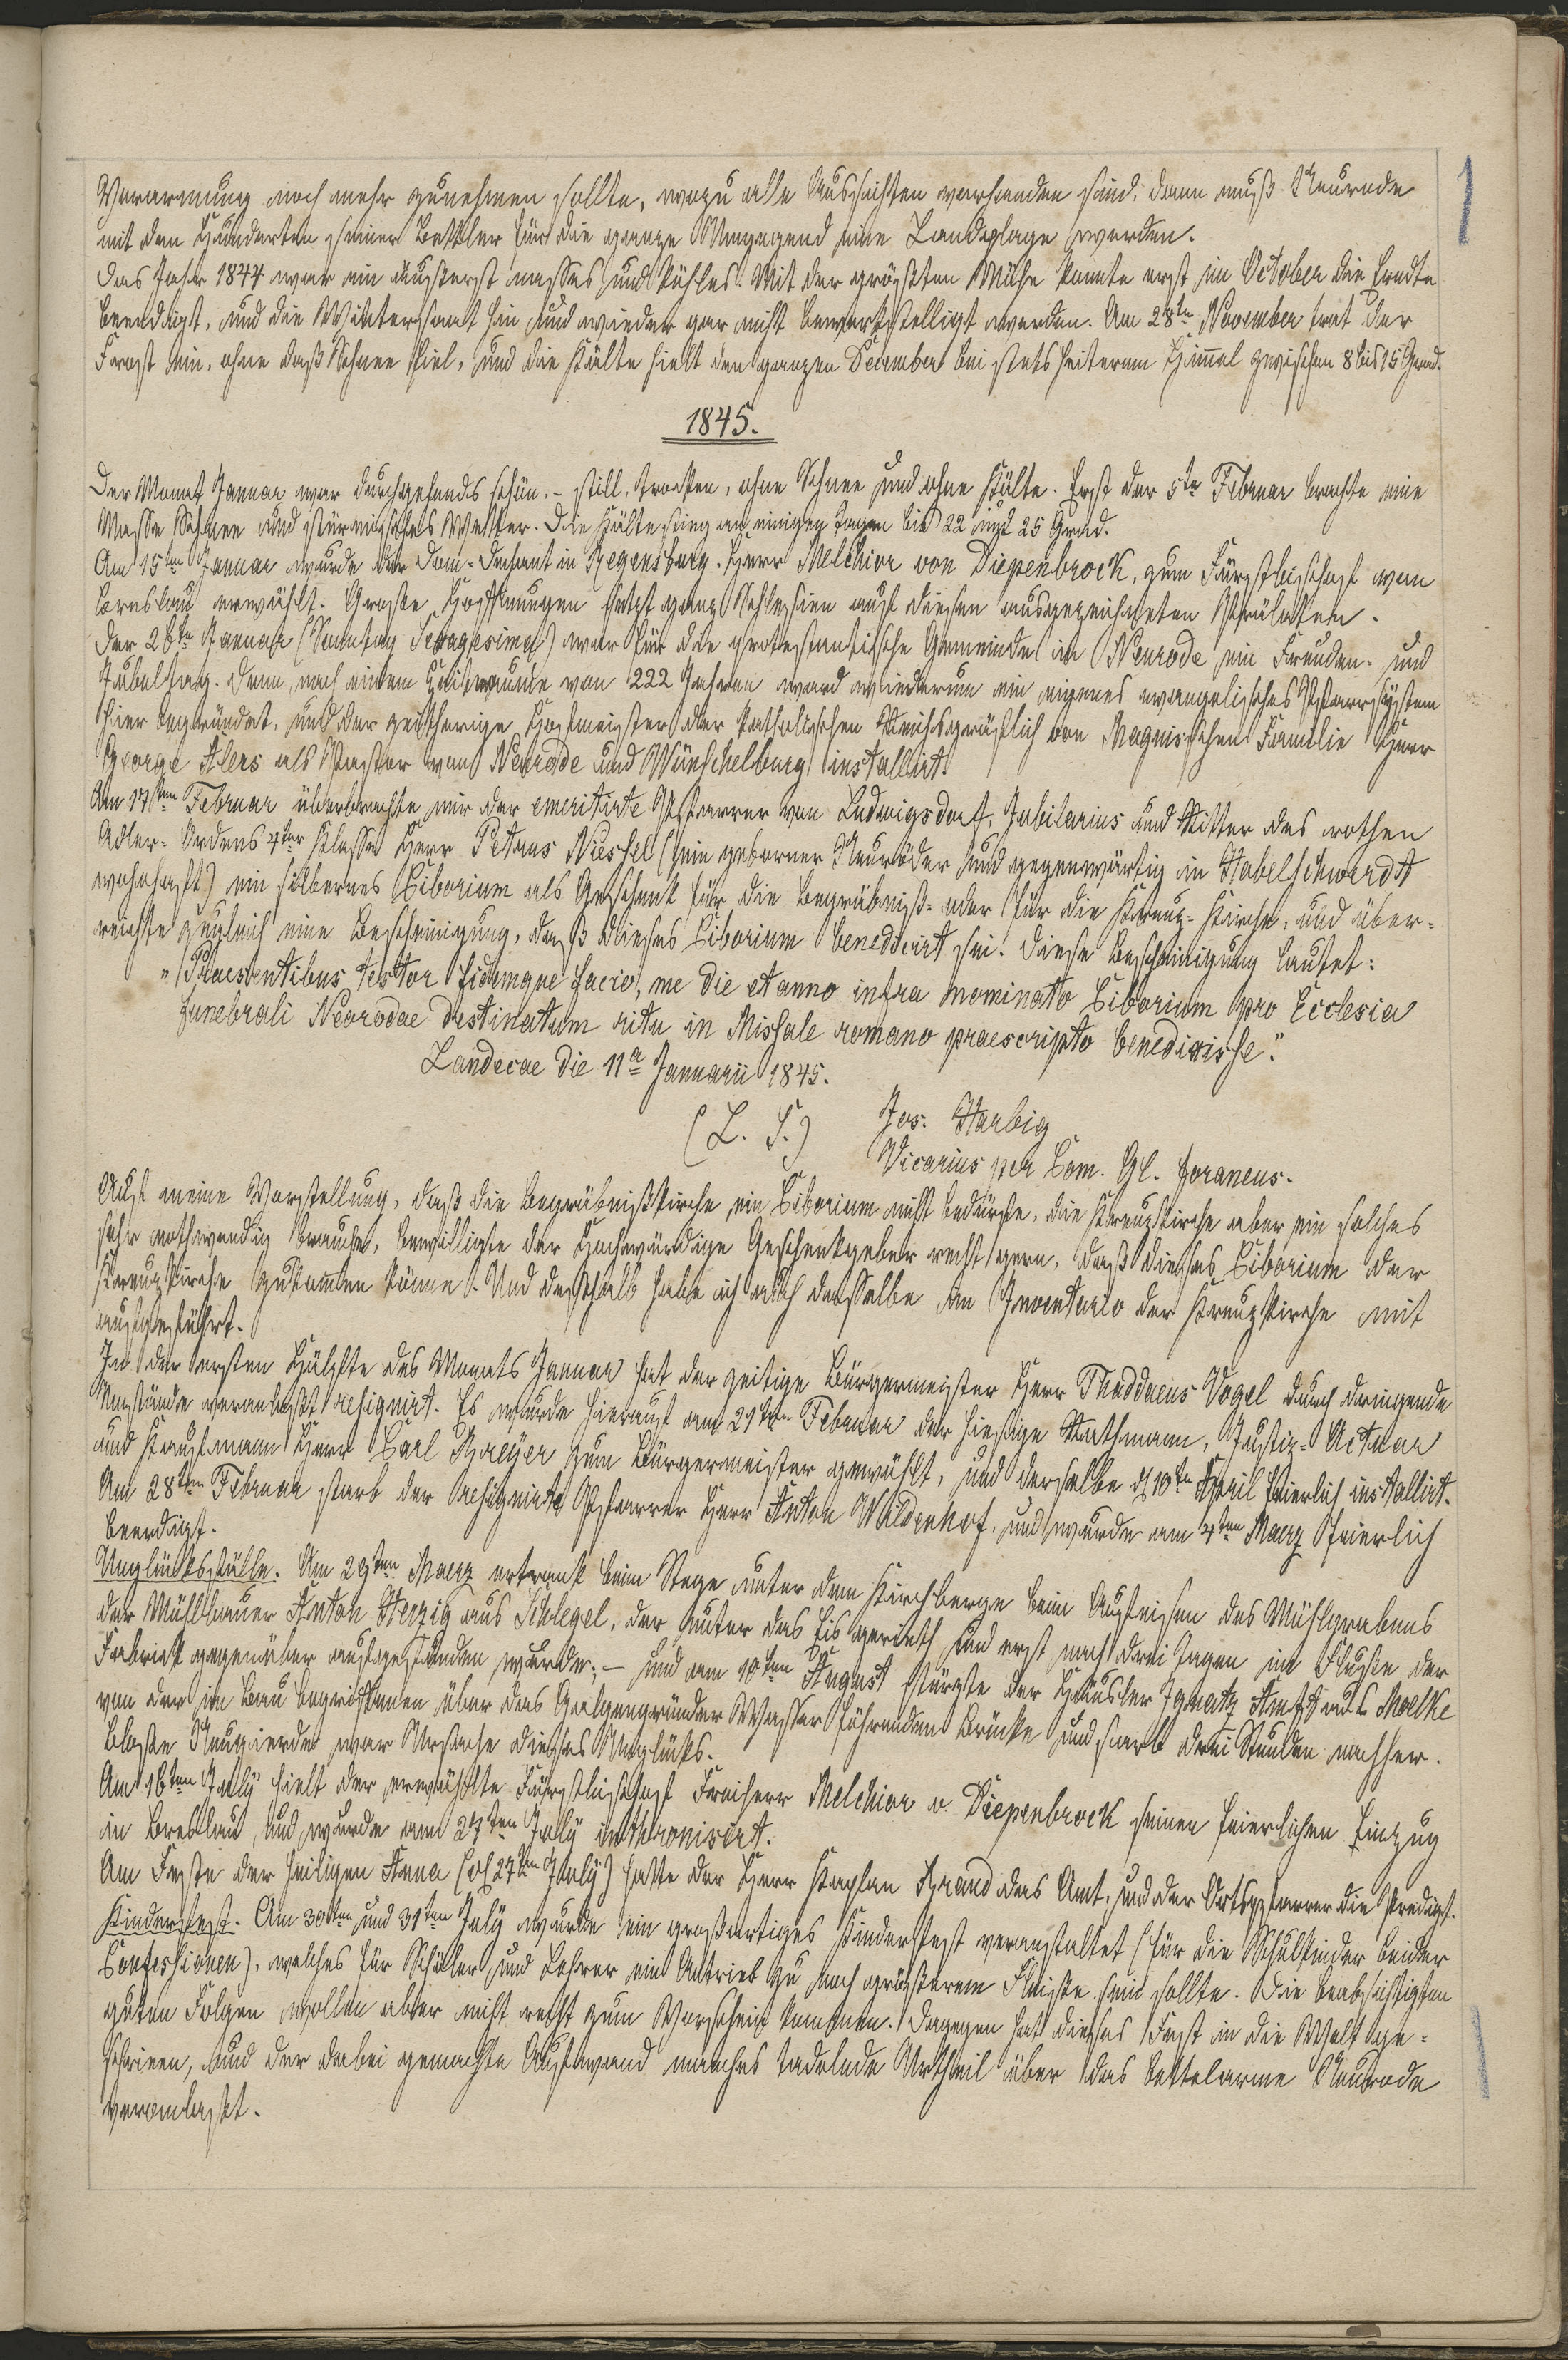 Verarmung noch mehr zunehmen sollte, wozu alle Aussichten vorhanden sind, dann muß Neurode
mit den Hunderten seiner Bettler für die ganze Umgegend eine Landplage werden.
Das Jahr 1844 war ein äußerst nasses und kühles. Mit der größten Mühe konnte erst im October die Erndte
beendigt, und die Wintersaat hin und wieder gar nicht bewerkstelligt werden. Am 28ten November trat der
Frost ein, ohne daß Schnee fiel, und die Kälte hielt den ganzen December bei stets heiterem Himmel zwischen 8 bis 15 Grad.
1845.
Der Monat Januar war durchgehends schön, – still, trocken, ohne Schnee und ohne Kälte. Erst der 5te Februar brachte eine
Masse Schnee und stürmisches Wetter. Die Kälte stieg an einigen Tagen bis 22 und 25 Grad.
Am 15ten Januar wurde der Dom-Dechant in Regensburg, Herr Melchior von Diepenbrock, zum Fürstbischof von
Breslau erwählt. Große Hoffnungen setzt ganz Schlesien auf diesen ausgezeichneten Prälaten.
Der 26te Januar (Sonntag Sexagesima) war für die protestantische Gemeinde in Neurode ein Freuden- und
Jubeltag. Denn nach einem Zeitraume von 222 Jahren ward wiederum ein eigenes evangelisches Pfarrsystem
hier begründet, und der zeitherige Hofmeister der katholischen Reichsgräflich von Magnisschen Familie Herr
George Alers als Pastor von Neurode und Wünschelburg installirt.
Am 17ten Februar überbrachte mir der emeritirte Pfarrer von Ludwigsdorf, Jubilarius und Ritter des rothen
Adler-Ordens 4ter Klasse Herr Petrus Niessel (ein geborner Neuröder und gegenwärtig in Habelschwerdt
wohnhaft) ein silbernes Ciborium als Geschenk für die Begräbniß- oder für die Kreuz-Kirche, und über-
reichte zugleich eine Bescheinigung, daß dieses Ciborium benedicirt sei. Diese Bescheinigung lautet:
"Praesentibus testor fidemque facio, me die et anno infra nominato Ciborium pro Ecclesia
funebrali Neorodae destinatum ritu in Missale romano praescripto benedixisse."
Landecae die 11a Januarii 1845.
(L. S.) Jos. Harbig
Vicarius per Com. Gl. foraneus.
Auf meine Vorstellung, daß die Begräbnißkirche ein Ciborium nicht bedürfe, die Kreuzkirche aber ein solches
sehr nothwendig brauche, bewilligte der Hochwürdige Geschenkgeber recht gern, daß dieses Ciborium der
Kreuzkirche zukommen könne. Und deßhalb habe ich auch dasselbe im Inventario der Kreuzkirche mit
aufgeführt.
In der ersten Hälfte des Monats Januar hat der zeitige Bürgermeister Herr Thaddaeus Vogel durch dringende
Umstände veranlaßt resignirt. Es wurde hierauf am 21ten Februar der hiesige Rathmann, Justiz-Actuar
und Kaufmann Herr Carl Breyer zum Bürgermeister gewählt, und derselbe d 10ten April feierlich installirt.
Am 28ten Februar starb der resignirte Pfarrer Herr Anton Wildenhof, und wurde am 4ten Maerz feierlich
beerdigt.
Unglücksfälle. Am 29ten Maerz ertrank beim Stege unter dem Kirchberge beim Aufeisen des Mühlgrabens
der Mühlbauer Anton Herzig aus Schlegel, der unter das Eis gerieth und erst nach drei Tagen im Fluße der
Fabrick gegenüber aufgefunden wurde; – und am 10ten August stürzte der Häusler Ignatz aus Moelke
von der im Bau begriffenen über das Galgengründer Wasser führenden Brücke und starb drei Stunden nachher.
Bloße Neugierde war Ursache dieses Unglücks.
Am 16ten July hielt der erwählte Fürstbischof Freiherr Melchior v. Diepenbrock seinen feierlichen Einzug
in Breslau, und wurde am 27ten July inthronisirt.
Am Feste der heiligen Anna (d 27ten July) hatte der Herr Kaplan Brand das Amt, und der Ortspfarrer die Predigt.
Kinderfest. Am 30ten und 31ten July wurde ein großartiges Kinderfest veranstaltet (für die Schulkinder beider
Confessionen), welches für Schüler und Lehrer ein Antrieb zu noch größerem Fleiße sein sollte. Die beabsichtigten
guten Folgen wollen aber nicht recht zum Vorschein kommen. Dagegen hat dieses Fest in die Welt ge-
schrieen, und der dabei gemachte Aufwand manches tadelnde Urtheil über das bettelarme Neurode
veranlaßt.